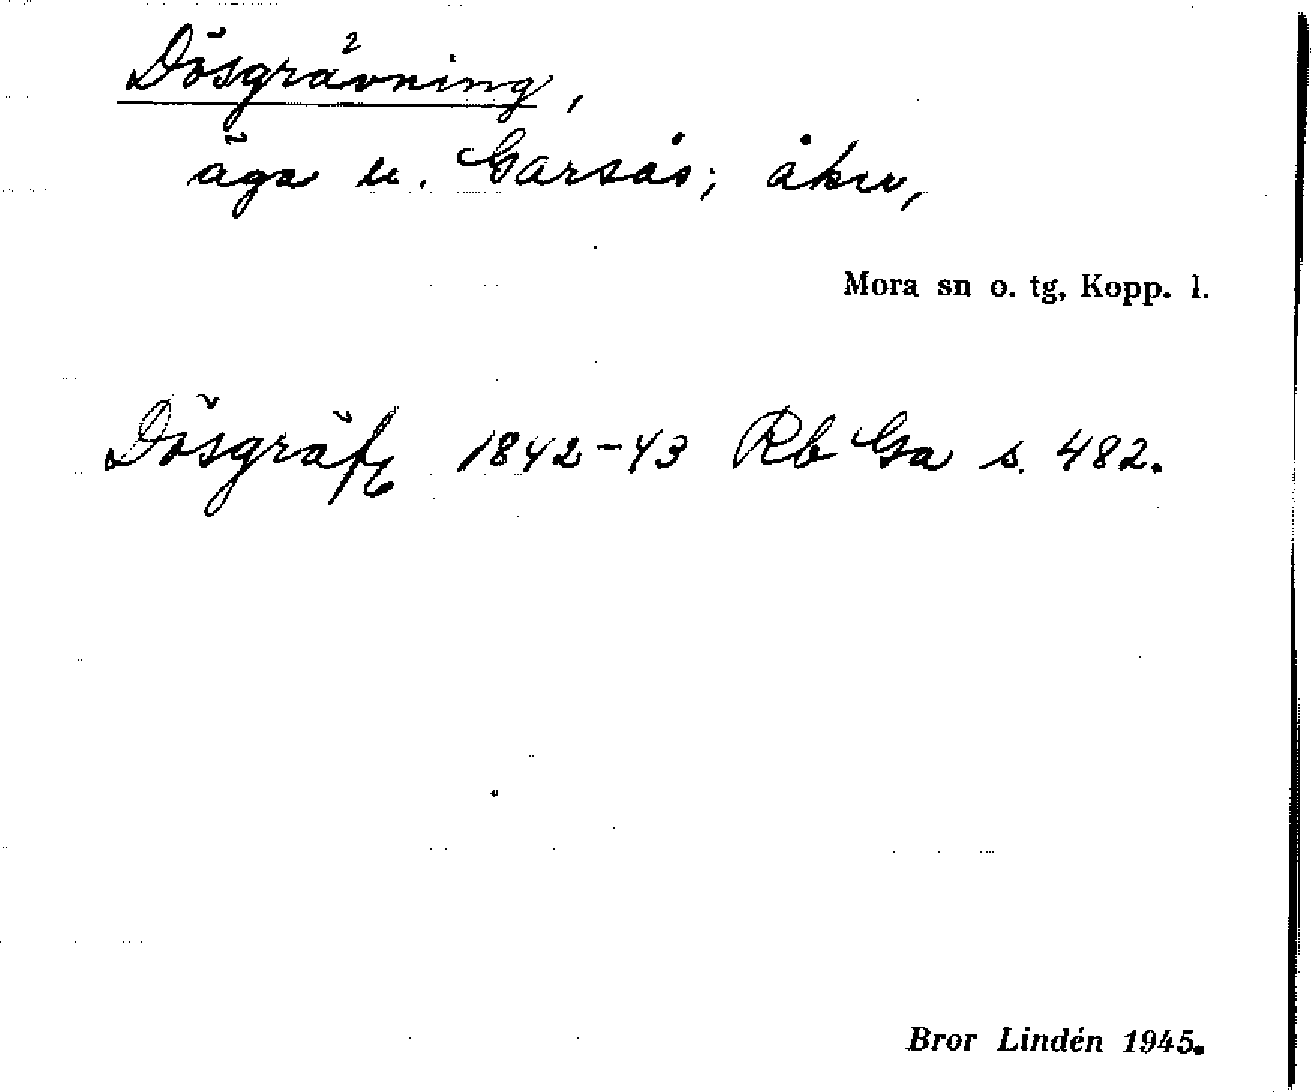 Dösgrävning,
äga u. Garsås; åker,
Mora sn o. tg, Kopp. l.
Dösgräfg 1842-43 Rb Ga s. 482.
Bror Lindén 1945.